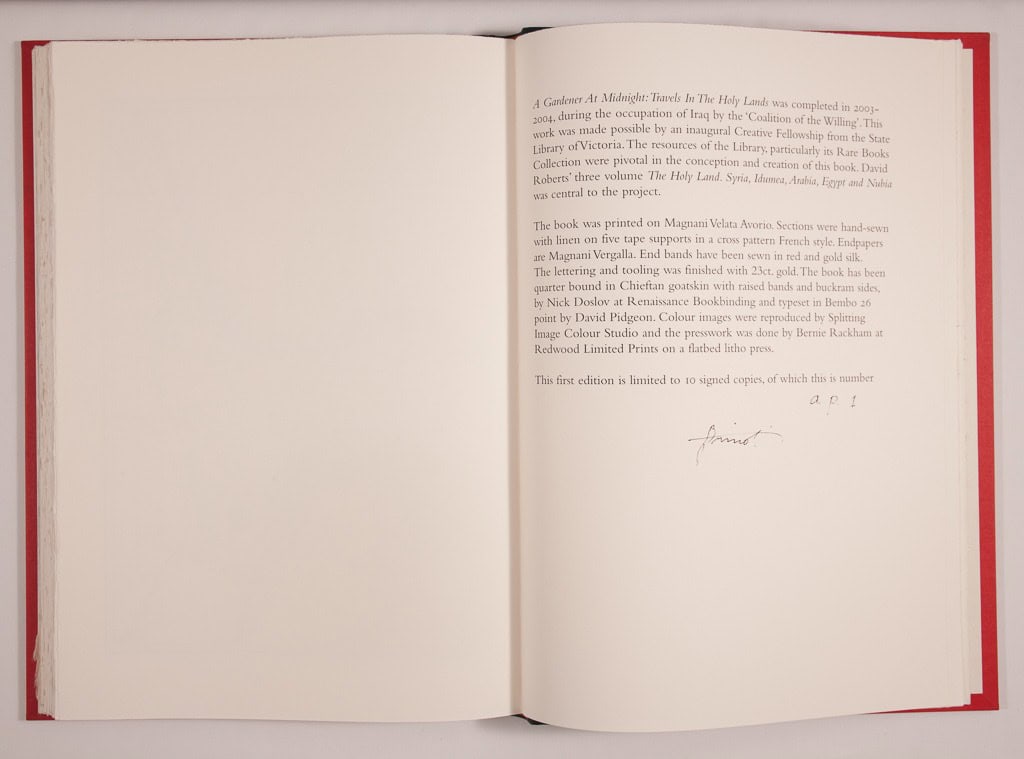 A Gardener At Midnight: Travels In The Holy Lands was completed in 2003-
2004, during the occupation of Iraq by the ‘Coalition of the Willing’. This
work was made possible by an inaugural Creative Fellowship from the State
Library of Victoria. The resources of the Library, particularly its Rare Books
Collection were pivotal in the conception and creation of this book. David
Roberts’ three volume The Holy Land. Syria, Idumea, Arabia, Egypt and Nubia
was central to the project.

The book was printed on Magnani Velata Avorio. Sections were hand-sewn
with linen on five tape supports in a cross pattern French style. Endpapers
are Magnani Vergalla. End bands have been sewn in red and gold silk.
The lettering and tooling was finished with 23ct. gold. The book has been
quarter bound in Chieftan goatskin with raised bands and buckram sides,
by Nick Doslov at Renaissance Bookbinding and typeset in Bembo 26
point by David Pidgeon. Colour images were reproduced by Splitting
Image Colour Studio and the presswork was done by Bernie Rackham at
Redwood Limited Prints on a flatbed litho press.

This first edition is limited to 10 signed copies, of which this is number
a. p. 1